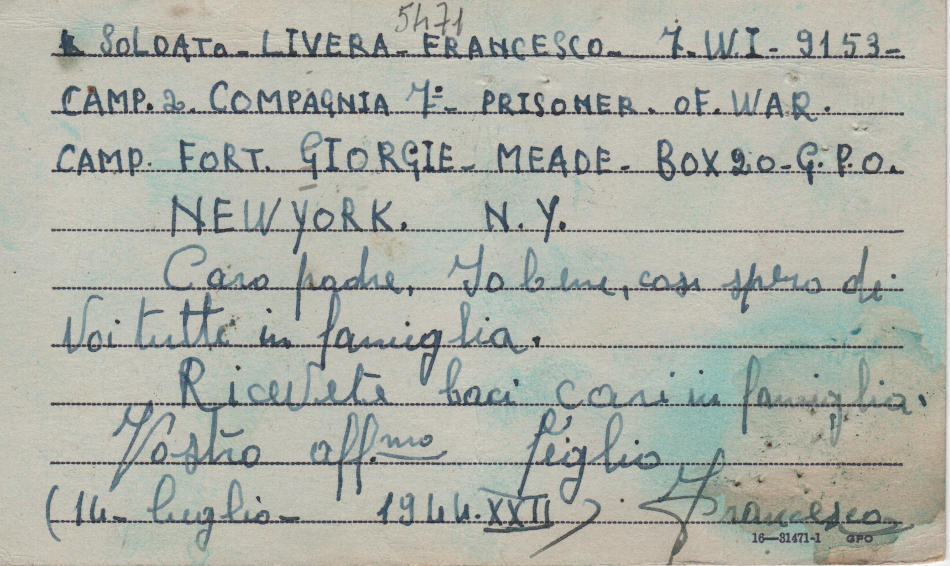 5471
SOLDATO - LIVERA - FRANCESCO - 7. W.I - 9153 -
CAMP. 2. COMPAGNIA 7ª - PRISONER. OF. WAR.
CAMP. FORT. GIORGIE - MEADE - BOX 20 - G. P. O.
NEW YORK. N. Y.
Caro padre, Io bene, cosi spero di
Voi tutti in famiglia.
Ricevete baci cari in famiglia.
Vostro aff.mo figlio
(14 - luglio - 1944. XXII) Francesco
16—31471-1 GPO